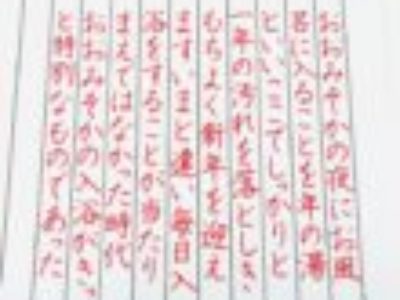 おおみそかの夜にお風
呂に入ることを年の湯
といいここでしっかりと
一年の汚れを落としき
もちよく新年を迎え
ますいまと違い毎日入
浴をすることが当たり
まえではなかった時代
おおみそかの入浴がきっ
と特別なものであった